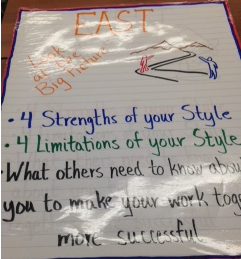 EAST
Look
at the
Big Picture
• 4 Strengths of your Style
• 4 Limitations of your Style
• What others need to know abou
you to make your work toge
more successful